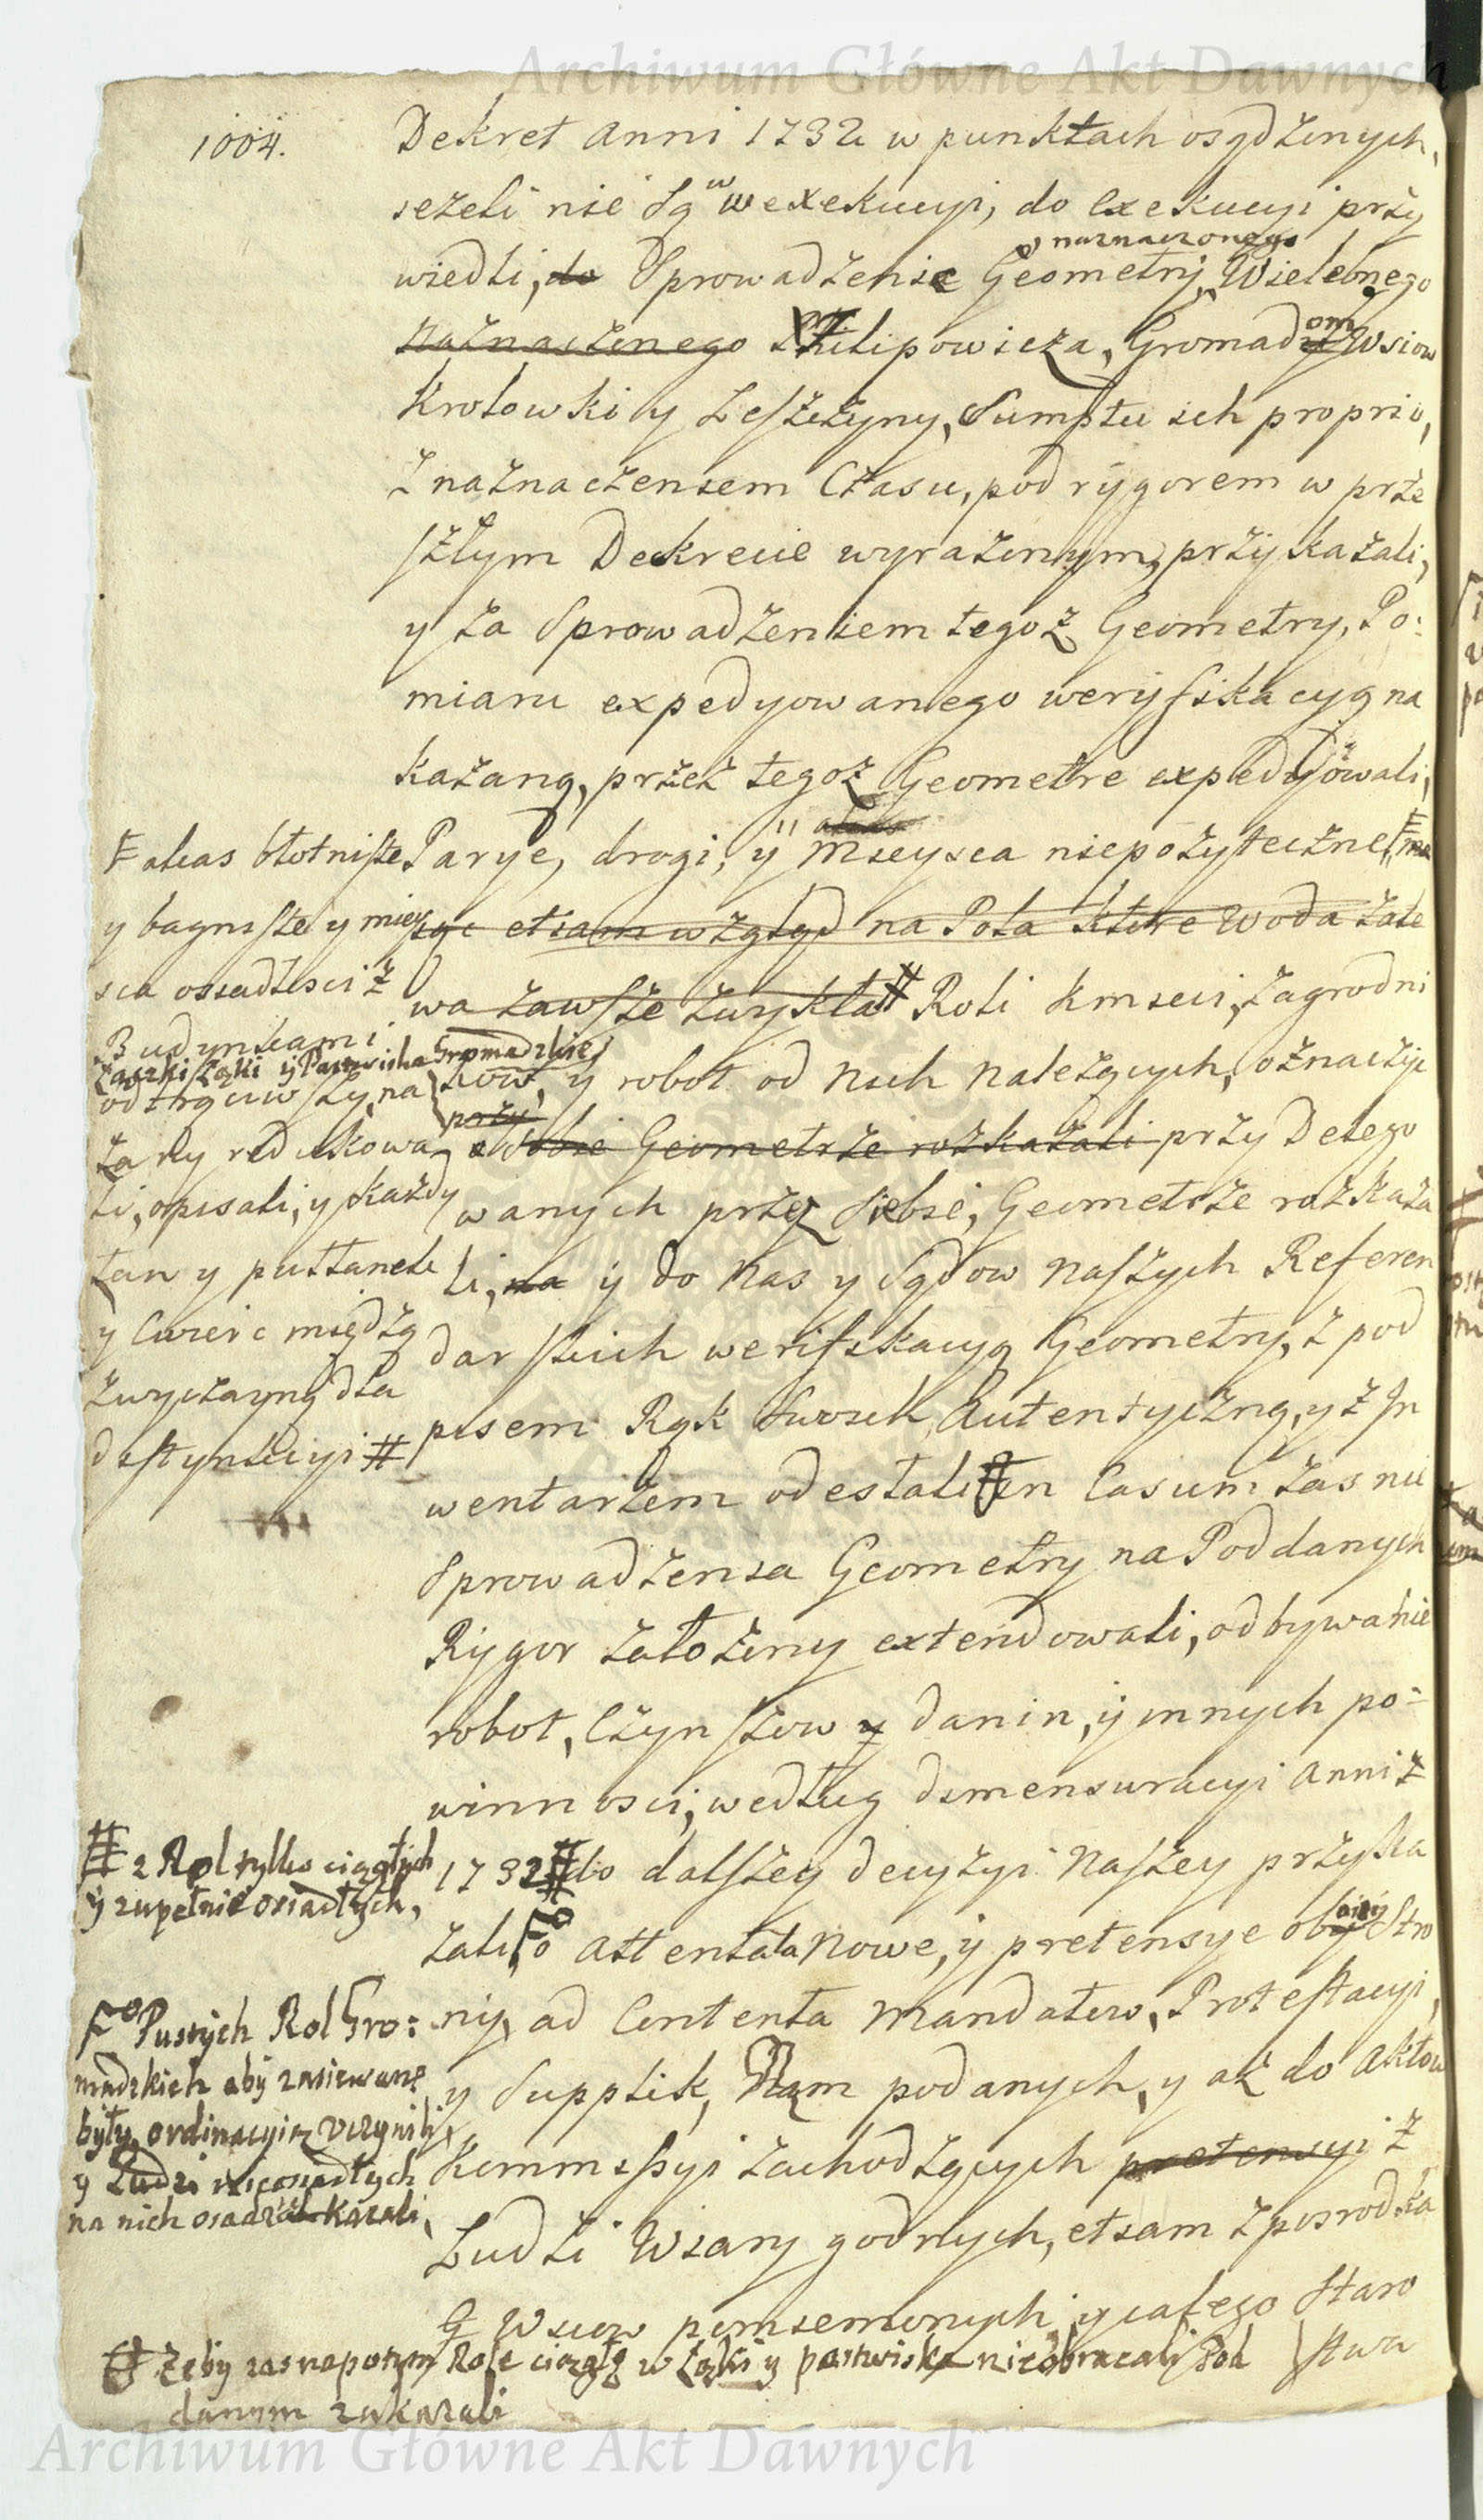 Archiwum Główne Akt Dawnych
1004.
Dekret Anni 1732 w punktach osądzonych,
jezeli nie są w exekucyi, do exekucyi przy
naznaczonego
wiedli, do Sprowadzenie Geometry, Wielebnego
naznaczonego Philipowicza, Gromadom Wsiow
Krolowki y Leszczyny, Sumptu ich proprio,
z naznaczeniem Czasu, pod rygorem w prze
szłym Dekrecie wyrażonym, przykazali,
y za Sprowadzeniem tegoż Geometry, Po:
miaru expedyowanego weryfikacyą na
kazaną, przez tegoż Geometre expedyowali,
Parye, drogi, y Mieysca niepożyteczne
etiam wzgląd na Pola ktore Woda zale
wa zawsze zwykła # Roli Kmieci, Zagrodni
kow, y robot od nich należących, oznaczyć
przy sobie Geometrze rozkazali przy Delego
wanych przez siebie, Geometrze rozkaza
li, na y do Nas y Sądow Naszych Referen
darskich werifikacyą Geometry, z pod
pisem Rąk Swoich, Autentyczną, y z In
wentarzem odesłali In Casum zas nie
Sprowadzenia Geometry na Poddanych
Rygor założony extendowali, odbywanie
robot, Czynszow y danin, y innych po-
winnosci, według dimensuracyi Anni
1732 # do dalszey decyzyi Naszey przyka
zali, Attentata Nowe, y pretensye oboiey Stro
ny, ad Contenta Mandatow, Protestacyi,
y Supplik, Nam podanych, y aż do Aktow
Kommissyi zachodzących pretensyi z
Ludzi Wiary godnych, etiam z posrodka
Wsiow pomienionych y całego Staro
stwa
alias błotniste
y bagniste y miey
sca osiadłosci z
Budynkami
Zaczki łąki y Pastwiska Gromadzkie
odtrąciwszy, na
ła ny redukowa
li, opisali, y każdy
łan y pułłanek
y Cwierc między
zwyczayną dla
distynkcyi #
# z Rol tylko ciągłych
y zupełnie osiadłych,
Pustych Rol Gro:
madzkich aby zasiewane
były, ordinacyią uczynili,
y Ludzi nieosiadłych
na nich osadzac kazali,
Zeby zas napotym Role ciągłe w Łąki y pastwiska nieobracali Pod
danym zakazali
Archiwum Główne Akt Dawnych